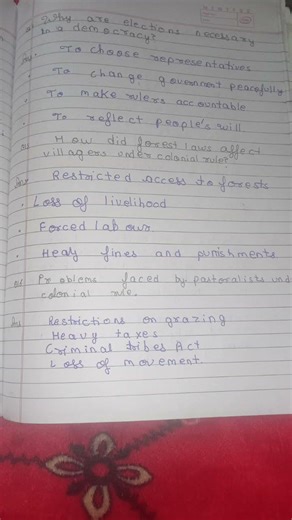 Why are elections necessary
in a democracy?
To choose representatives
To change government peacefully
To make rulers accountable
To reflect people's will
How did forest laws affect
villagers under colonial rule?
Restricted access to forests
Loss of livelihood
Forced labour
Heavy fines and punishments
Problems faced by pastoralists und
colonial rule.
Restrictions on grazing
Heavy taxes
Criminal tribes Act
Loss of movement